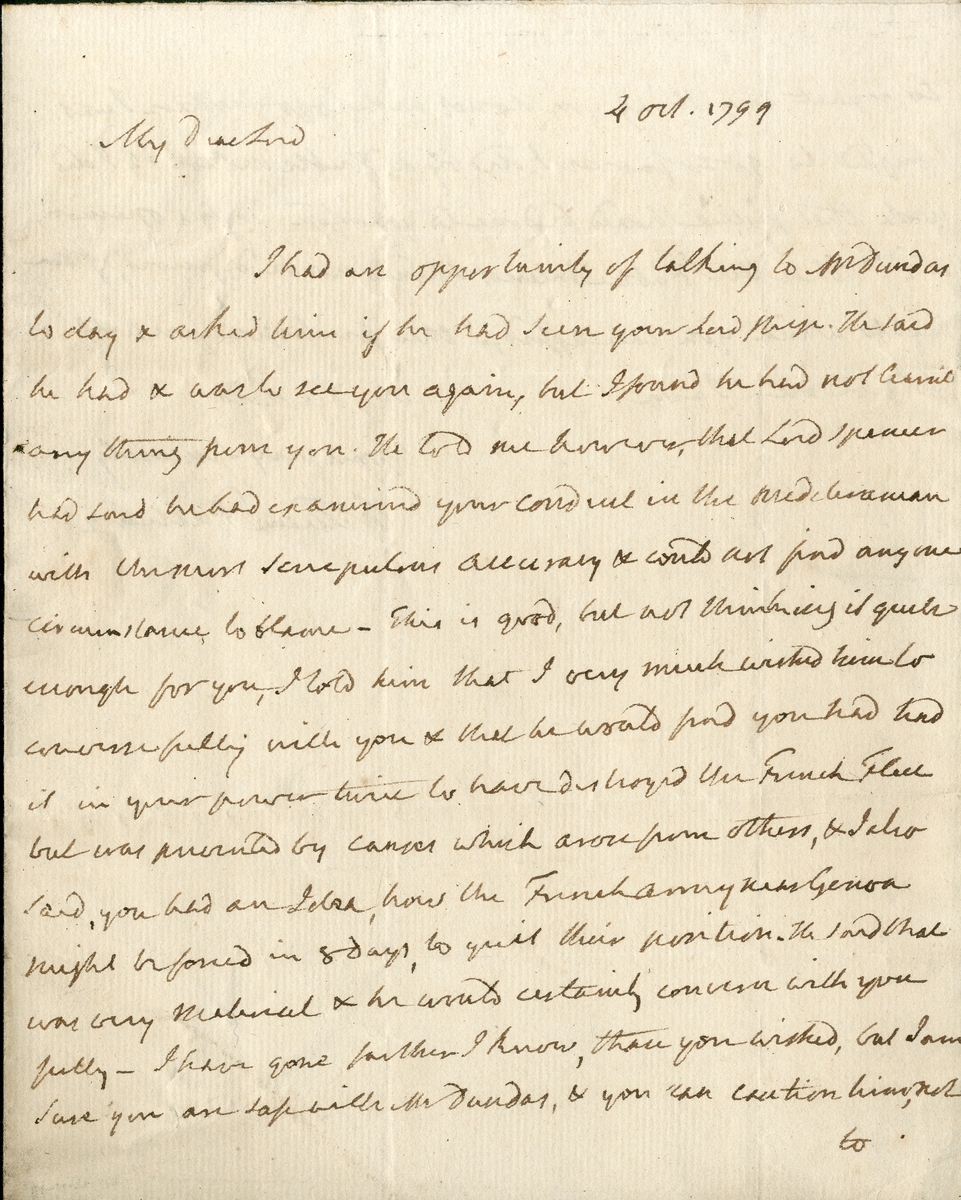 4 Oct. 1799
My Dear Lord
I had an opportunity of talking to Mr Dundas
to day & asked him if he had seen your Lordship. He said
he had & was to see you again, but I found he had not learnt
any thing from you. He told me however, that Lord Spencer
had said he had examined your conduct in the Mediterranean
with the most scrupulous accuracy & could not find any one
circumstance to blame - This is good, but not thinking it quite
enough for you, I told him that I very much wished him to
converse fully with you & that he would find you had had
it in your power twice to have destroyed the French Fleet
but was prevented by causes which arose from others, & I also
said, you had an Idea, how the French army near Genoa
might be forced in 8 days, to quit their position. He said that
was very material & he would certainly converse with you
fully - I have gone farther I know, than you wished, but I am
sure you are safe with Mr Dundas, & you can caution him, not
to